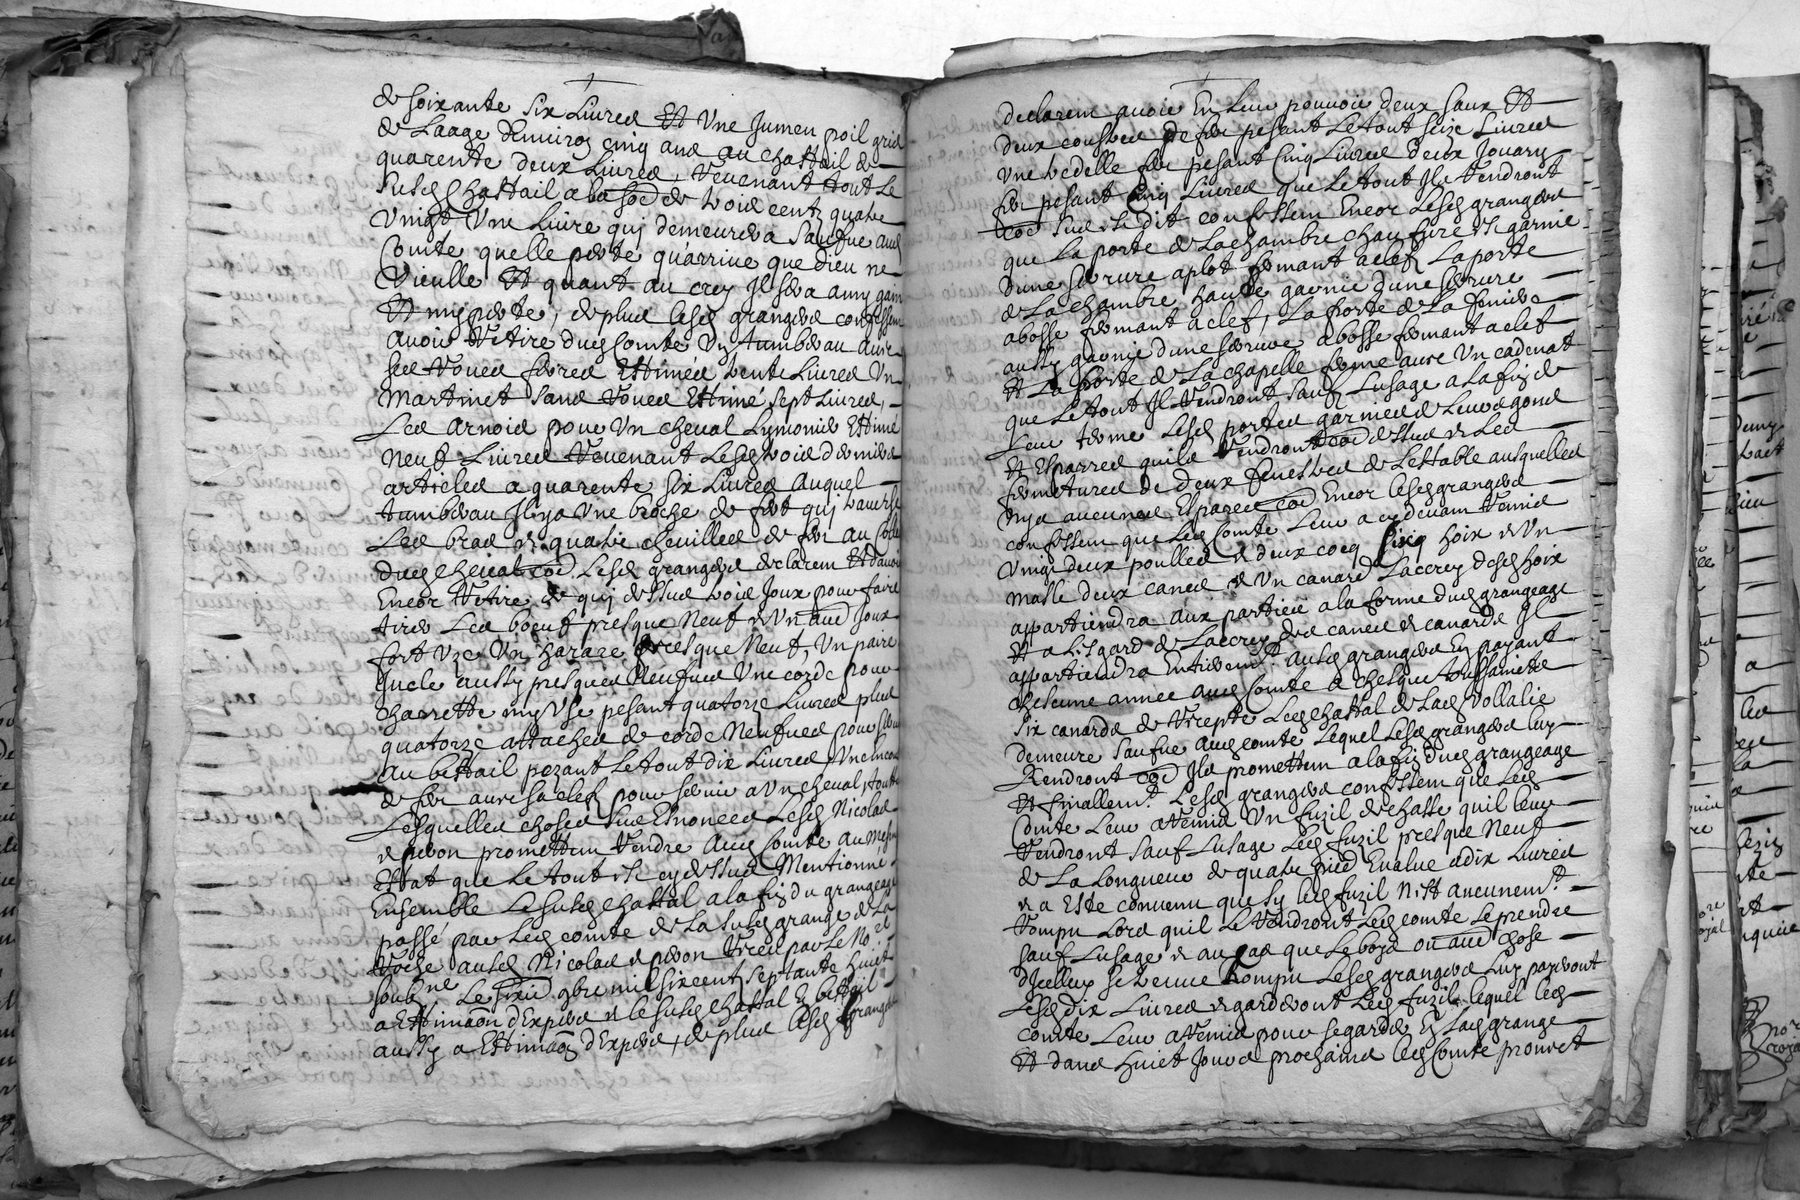 de soixante six Livres Et Une Jumen poil gris
de Laage denuiron cinq ans au chattail de
quarente deux Livres, Reuenant tout Le
susd chattail a la so͠e de trois cents quatre
Vingt Une Liure quj demeurera Saufue aud
Comte quelle perte qu'arriue que dieu ne
Vieulle Et quant au croy Jl sera amy gain
Et my perte, de plus lesd grangers confessent
Auoir Retire dud Comte Vn tumbereau auec
ses Roues ferres Estimes trente Livres Un
Martinet sans Roues Estimé sept Livres,
Les Arnois pour Un cheval Lymonier Estimé
neuf Livres Reuenant Lesd trois derniers
articles a quarente six Livres Auquel
tumbereau Jl y a Une broche de fer quj trauerse
Les bras et quatre cheuilles de fer au Colier
dud cheual co͠e Lesd grangers declarent Et d'auoir
Encor Retire de quj dessus trois Joux pour faire
tirer Les boeufs presque Neuf et Un aud Joux
fort Uze Un haraze presque Neuf, Un paire
Jucle aussy presques Neufues Une corde pour
charrette my Use pesant quatorze Livres plus
quatorze attaches de corde Neufues pour seruir
Au bestail pezant Le tout dix Livres Une
de fer auec sa clef pour seruir a Un cheual, toutes
Lesquelles choses sus Enoncees Lesd Nicolas
et promettent Rendre Aud Comte au mesme
Estat que Le tout Est cy dessus Mentionne
Ensemble Le susd chattal a la fin du grangeage
passé par Led comte de La susd grange de La
Roche ausd Nicolas et Receu par Le No.re
soubne Le sixie 9bre mil six cent septante huict
a Estima͠on d'Expers et le susd chattal En bestail
aussy a Estima͠on d'Expers, de plus Lesd grangers
declarent auoir En Leur pouuoir deux faux Et
deux coustres de fer pesant Le tout seize Livres
Une bedelle fer pesant Cinq Livres deux Jouary
fer pesant Cinq Livres que Le tout Jls Rendront
co͠e sus Est dit confessem Encor Lesd grangers
que La porte de La chambre chaufure Est garnie
d'une serrure a plot fermant a clef, La porte
de La chambre haute garnie d'une serrure
a bosse fermant a clef, La porte de La
aussy garnie d'une serrure a bosse fermant a clef
Et La porte de La chapelle ferme auec Un cadenat
que Le tout Jl Rendront sauf Lusage a La fin de
Leur terme Lesd portes garnies de Leurs gons
Et Esparres quils Rendront co͠e dessus et Les
fermetures de deux fenestres de Lestable ausquelles
ny a aucunes Espares co͠e Encor Lesd grangers
confessem que Led Comte Leur a cy deuant Remis
Vingt deux poulles et deux coqs six hoix et Un
masle deux canes et Un canard Laccroy desd hoix
appartiendra aux parties a la forme dud grangeage
Et a L'Esgard de Laccroy des canes et canards Jl
appartiendra Entierem.t Ausd grangers En payant
chescune annee aud Comte a chesque toussaincte
six canards de Recepte Led chattal de Lad Vollalie
demeure saufue Aud comte Lequel Lesd grangers luy
Rendront co͠e Jls promettem a la fin dud grangeage
Et finallem.t Lesd grangers confessem que Led
Comte Leur a Remis Un fuzil de chasse quil Leur
Rendront sauf Lusage Led fuzil presque Neuf
de La Longueur de quatre pied Eualue a dix Livres
et a Este conuenu que sy Led fuzil N'Est aucunem.t
Rompu Lors quil Le Rendront Led comte Le prendre
sauf Lusage et au cas que Le boix ou aud chose
d'Jcelluy se treuue Rompu Lesd grangers Luy payeront
Lesd dix Livres et garderont Led fuzil lequel Led
comte Leur a Remis pour se garder En Lad grange
Et dans huict Jours prochains Led Comte promet